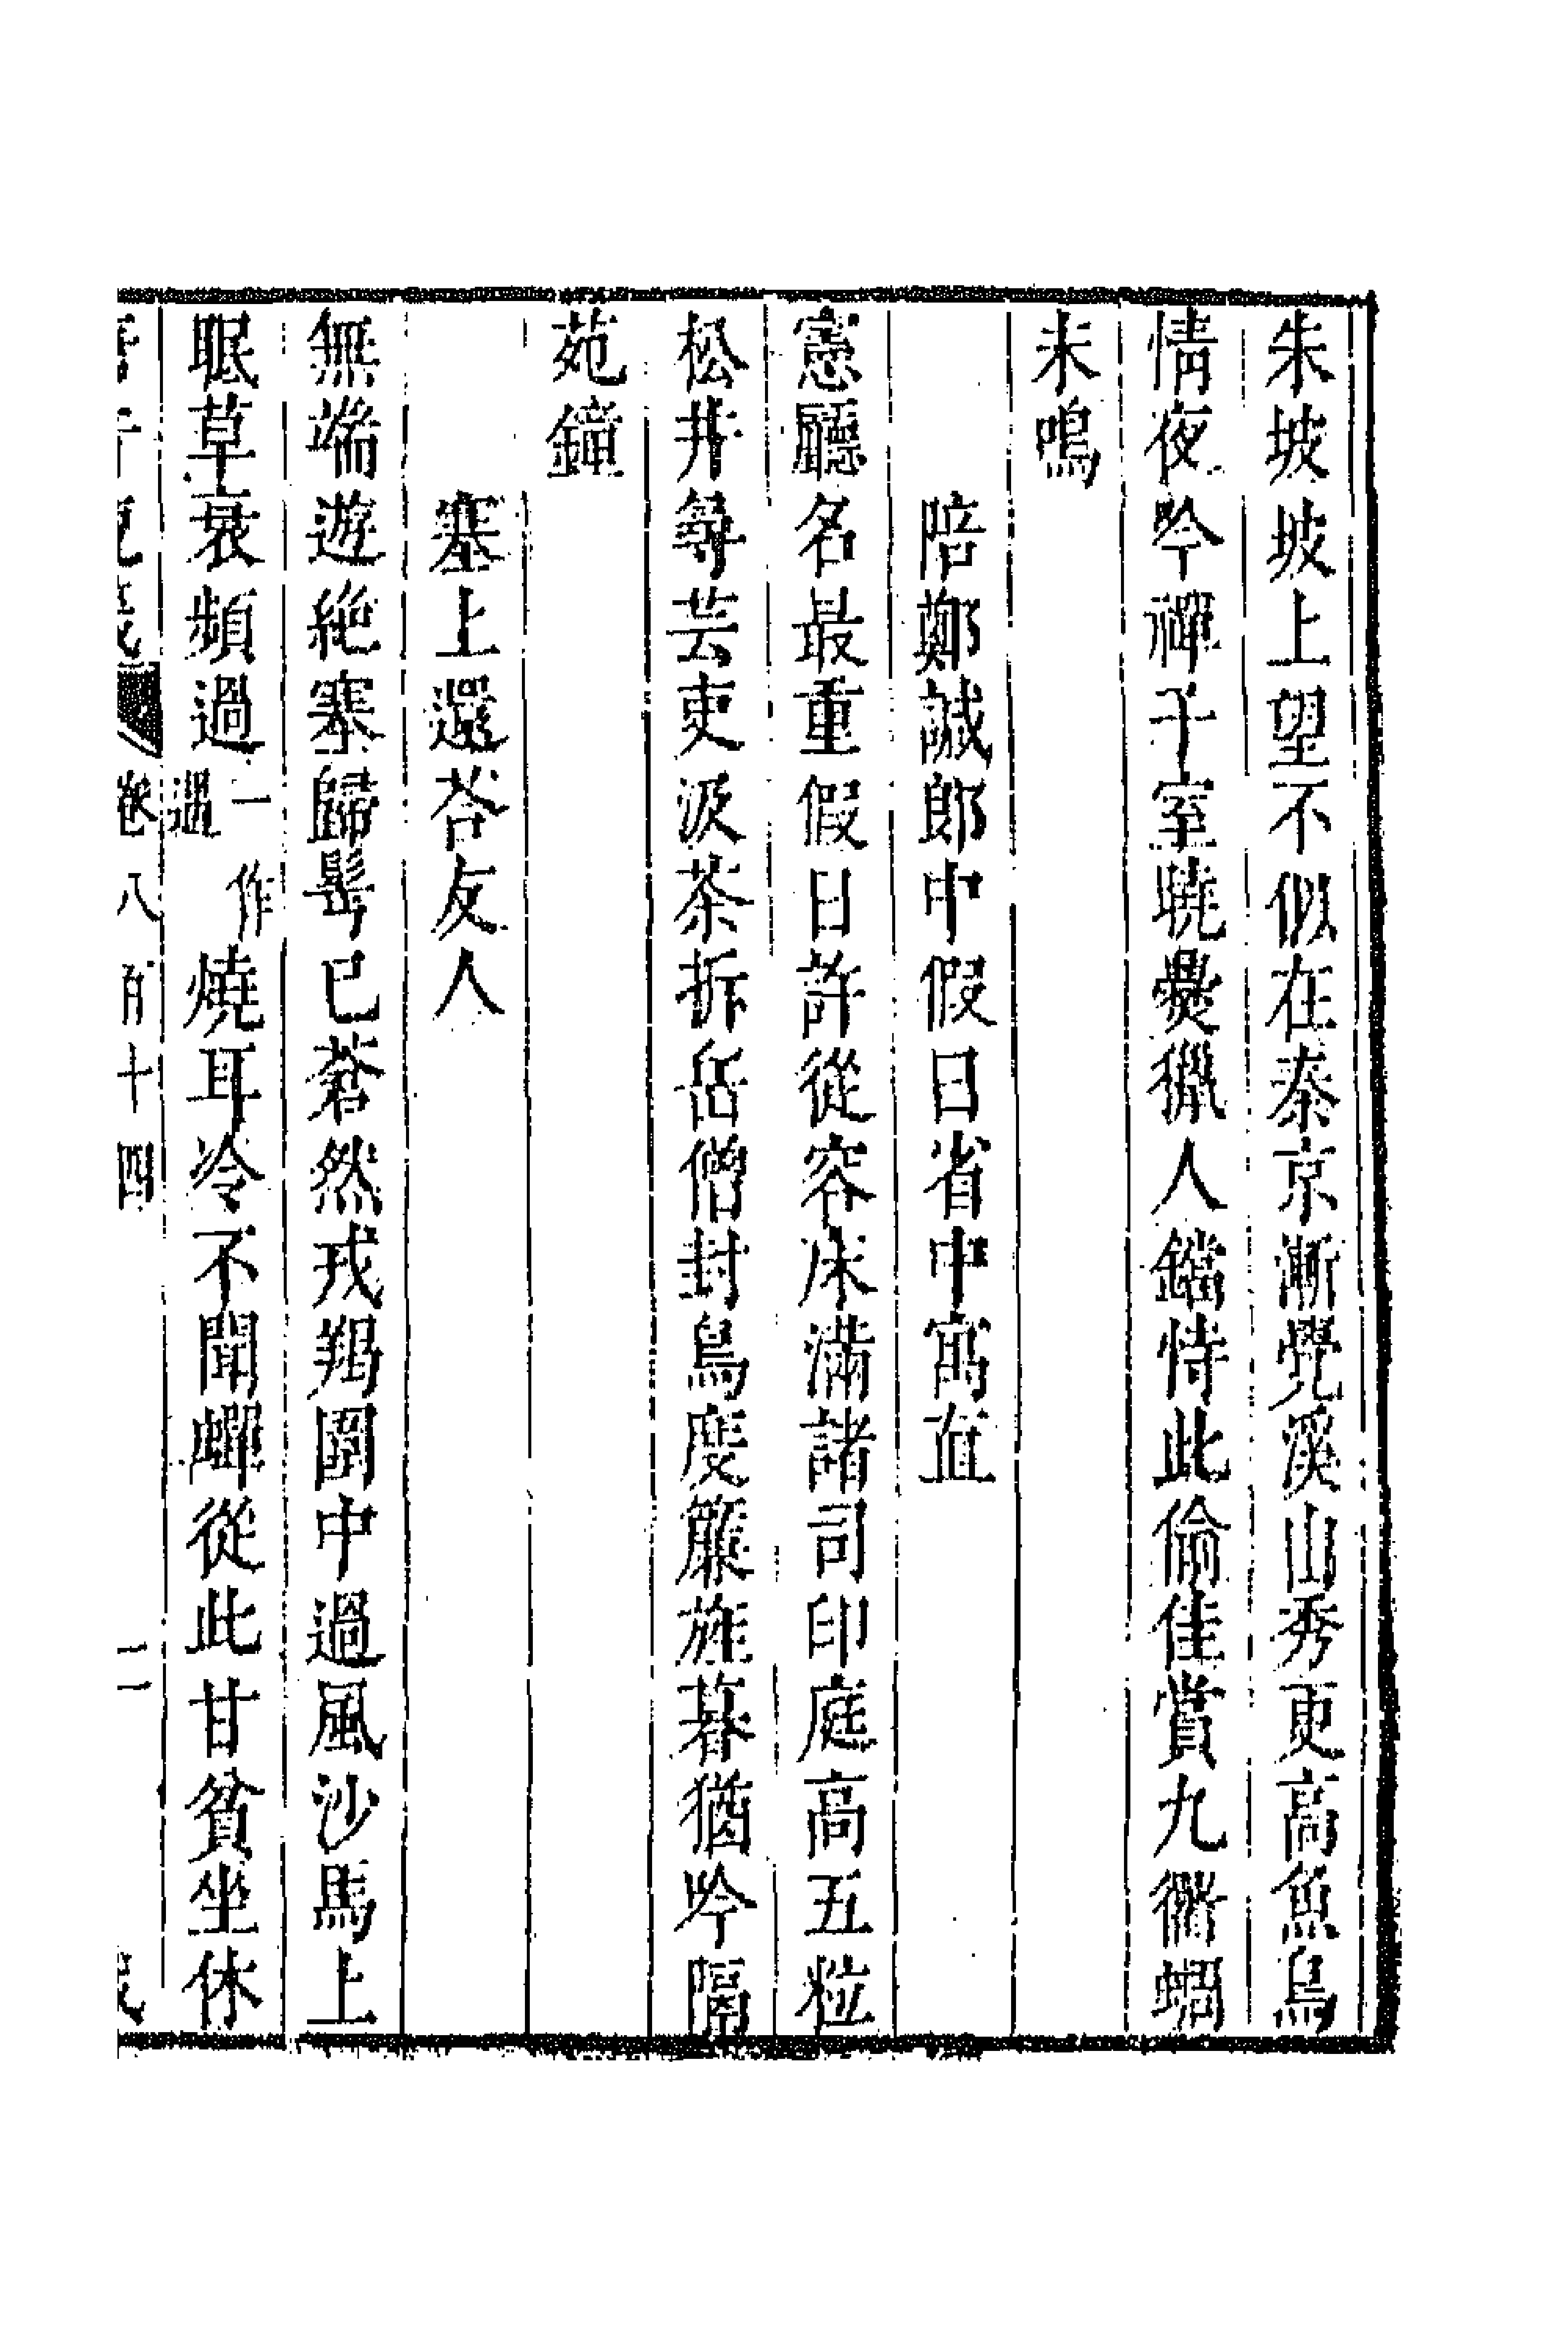 朱坡坡上望不似在秦京漸覺溪山秀更高魚鳥
情夜吟禪子室曉爨獵人鐺恃此偷佳賞九衢蜩
未鳴
陪鄭諴郎中假日省中寓直
憲廳名最重假日許從容床滿諸司印庭高五粒
松井尋芸吏汲茶拆岳僧封鳥度簾旌暮猶吟隔
苑鐘
塞上還荅友人
無端遊絕塞歸髩已蒼然戎羯圍中過風沙馬上
眠草衰頻過一作遇燒耳冷不聞蟬從此甘貧坐休
卷八百十四 二